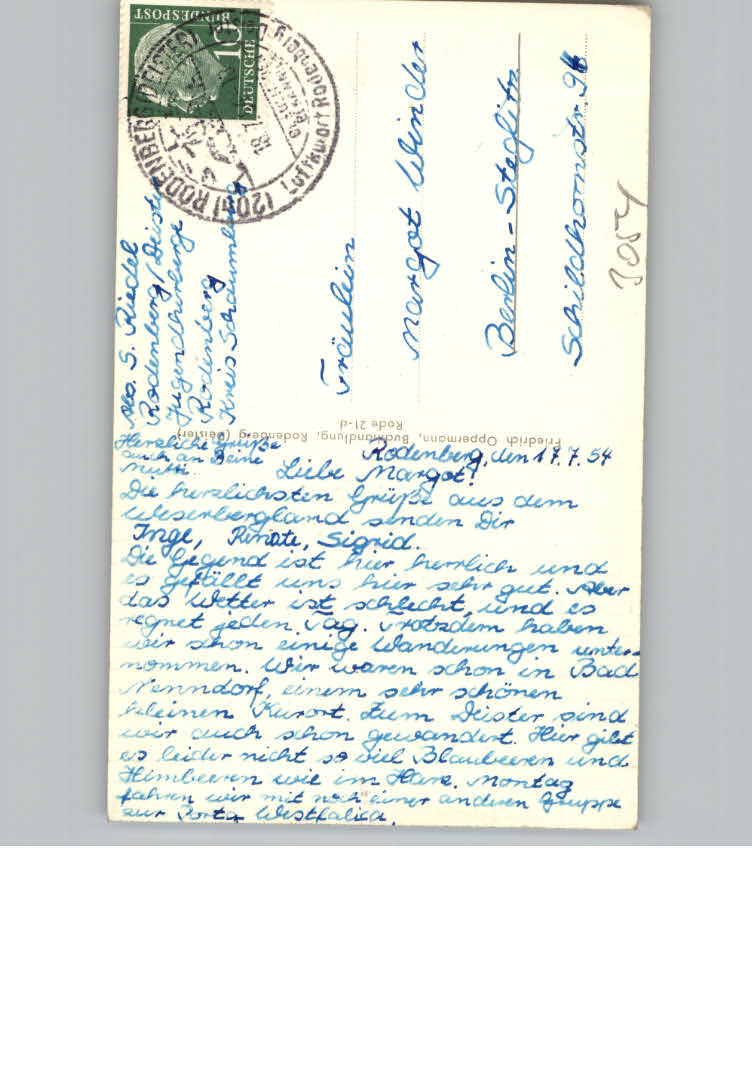 Rodenberg, den 17.7.54
Liebe Margot!
Die herzlichsten Grüße aus dem
Weserbergland senden Dir
Inge, Renate, Sigrid.
Die Gegend ist hier herrlich und
es gefällt uns hier sehr gut. Aber
das Wetter ist schlecht, und es
regnet jeden Tag. Trotzdem haben
wir schon einige Wanderungen unter-
nommen. Wir waren schon in Bad
Nenndorf, einem sehr schönen
kleinen Kurort. Zum Deister sind
wir auch schon gewandert. Hier gibt
es leider nicht so viel Blaubeeren und
Himbeeren wie im Harz. Montag
fahren wir mit noch einer anderen Gruppe
zur Porta Westfalica.
Herzliche Grüße
auch an Deine
Mutti.
Abs. S. Riedel
Rodenberg/Deister
Jugendherberge
Rodenberg
Kreis Schaumburg
Fräulein
Margot Winder
Berlin-Steglitz
Schildhornstr. 96
3054
Friedrich Oppermann, Buchhandlung, Rodenberg (Deister)
Rode 21-d
DEUTSCHE
BUNDESPOST
10
(20a) RODENBERG (DEISTER)
Luftkurort Rodenberg